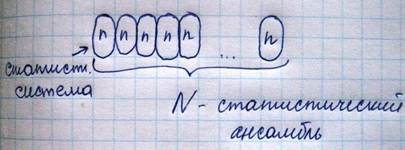 n n n n n ... n
статист.
система
N - статистический
ансамбль